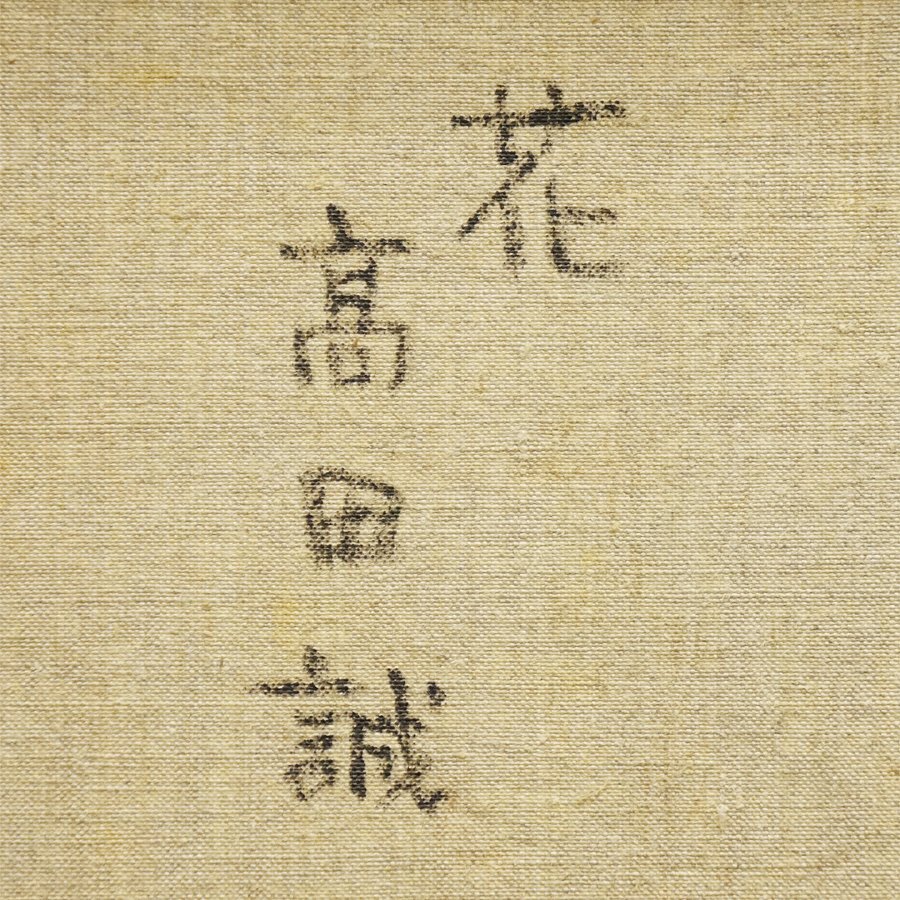 花
高田誠